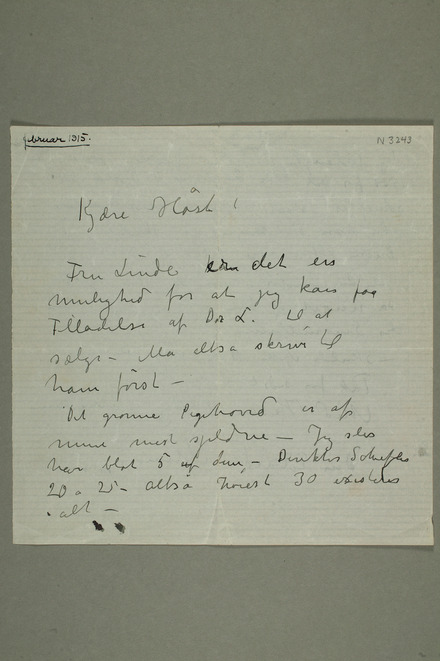 februar 1915.
N 3243
Kjære Høst!
Fru Linde er det en
mulighed for at jeg kan faa
Tilladelse af Dr L. til at
sælge – Må altså skrive til
ham først –
Det grønne Pigehoved er af
mine mest sjeldne – Jeg
har blot 5 af dem, – Direktør Schiefler
20 a 25 – altså høiest 30 existerer
alt –